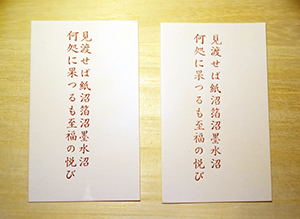 見渡せば紙沼箔沼墨水沼
何処に果つるも至福の悦び
見渡せば紙沼箔沼墨水沼
何処に果つるも至福の悦び